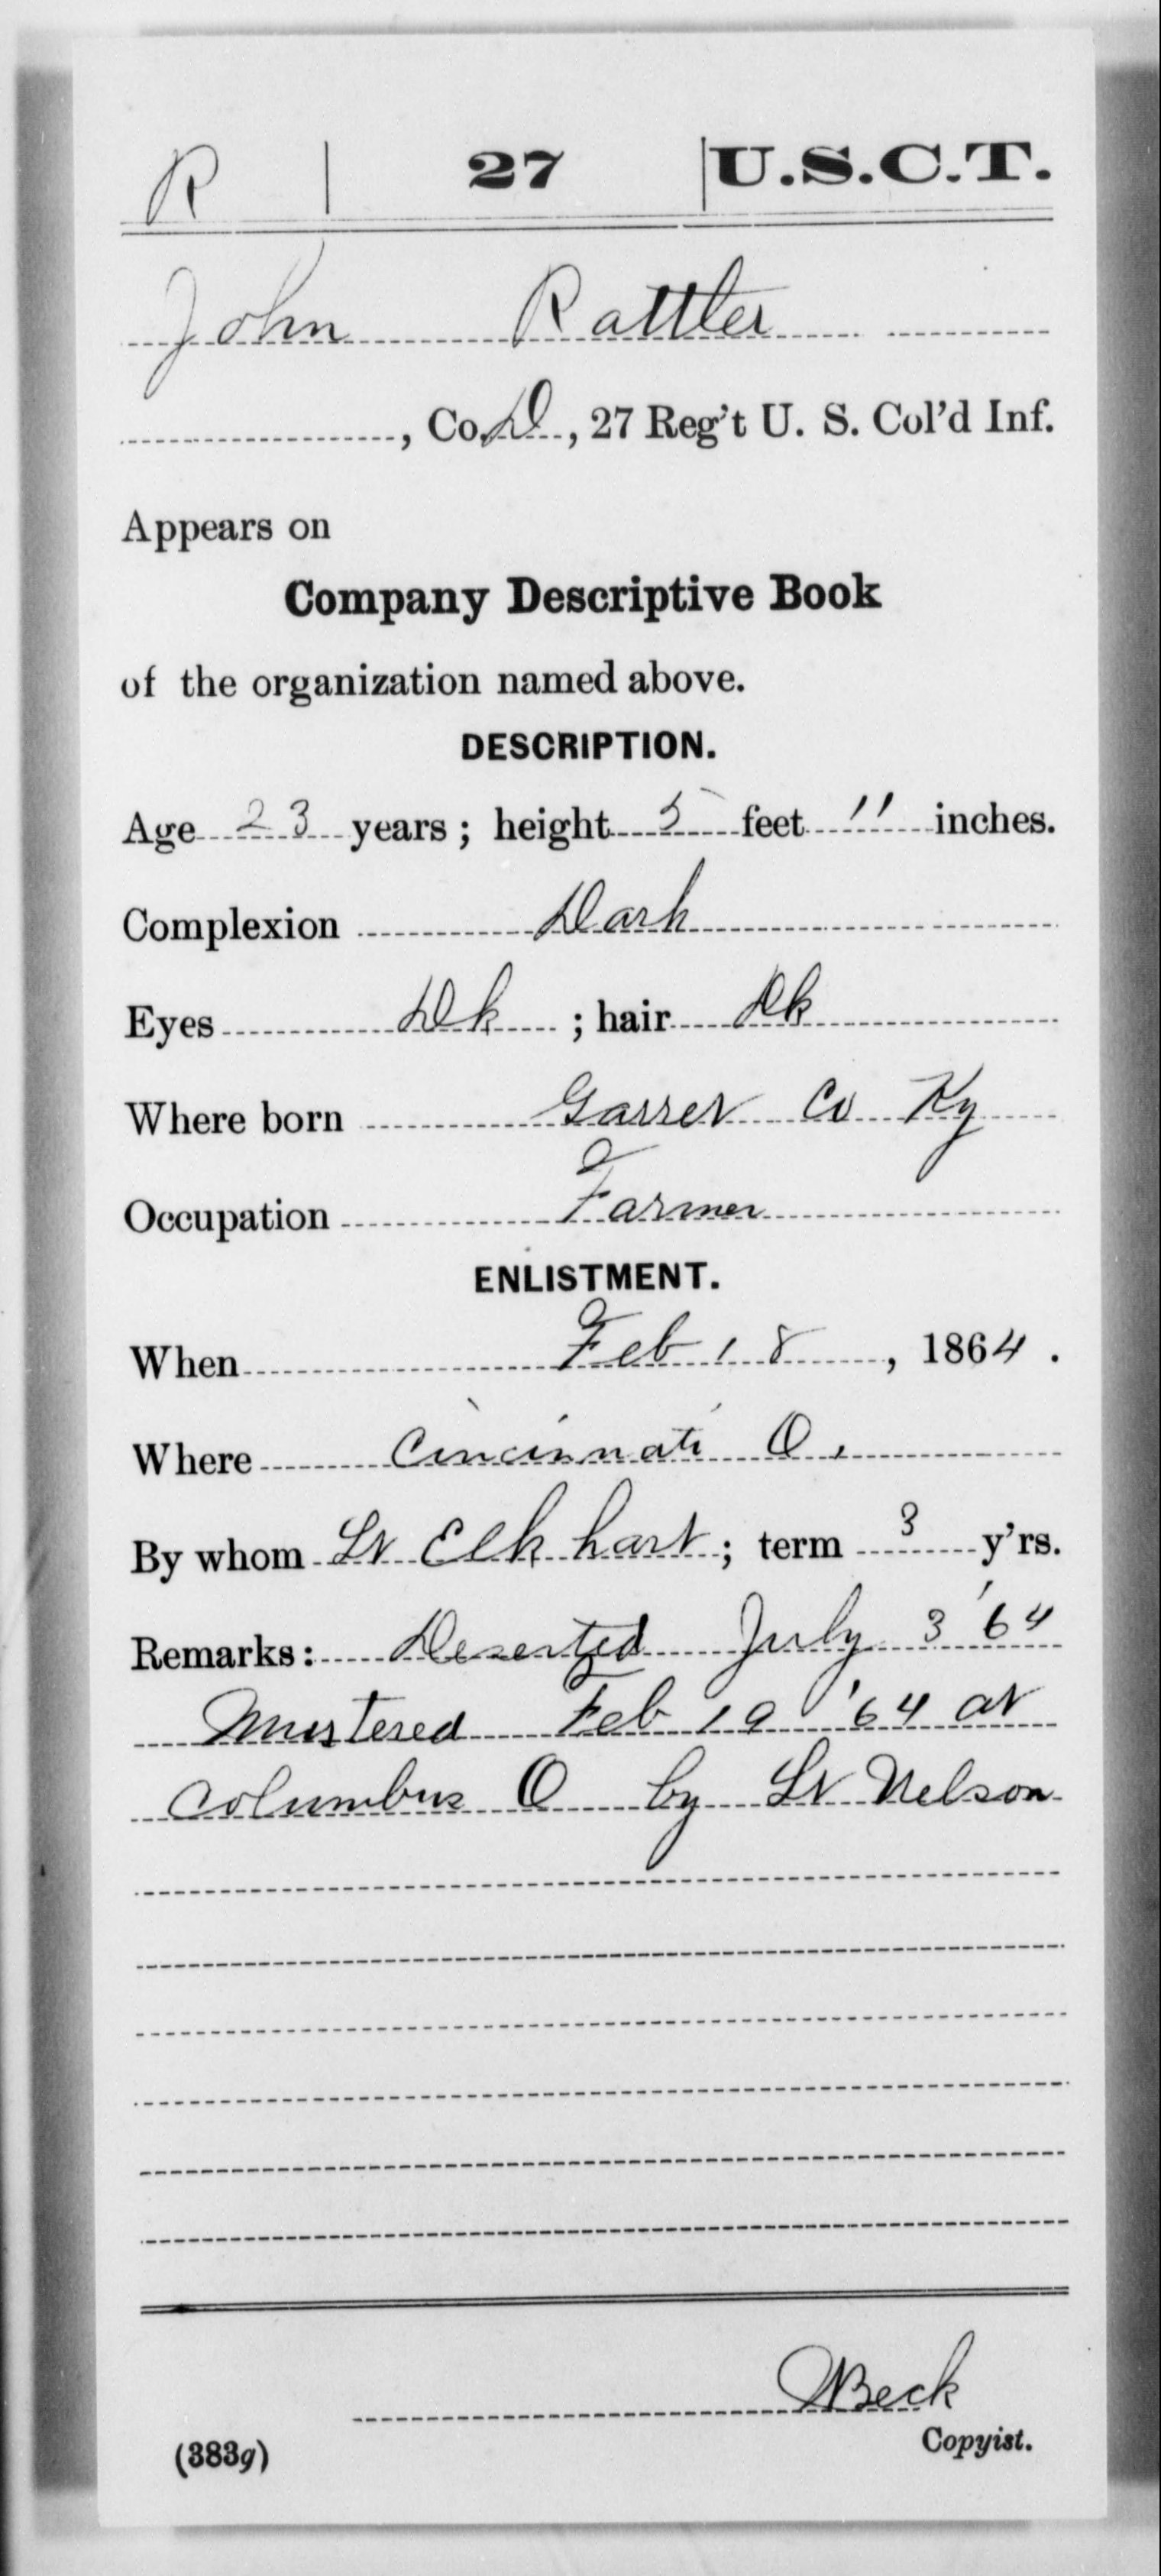 R 27 U.S.C.T.
John Rattler
, Co. D, 27 Reg't U. S. Col'd Inf.
Appears on
Company Descriptive Book
of the organization named above.
DESCRIPTION.
Age 23 years; height 5 feet 11 inches.
Complexion Dark
Eyes Dk ; hair Dk
Where born Garret Co Ky
Occupation Farmer
ENLISTMENT.
When Feb 18, 1864.
Where Cincinnati O.
By whom Lt Elkhart; term 3 y'rs.
Remarks: Deserted July 3 '64
Mustered Feb 19 '64 at
Columbus O by Lt Nelson
Beck
(383g) Copyist.